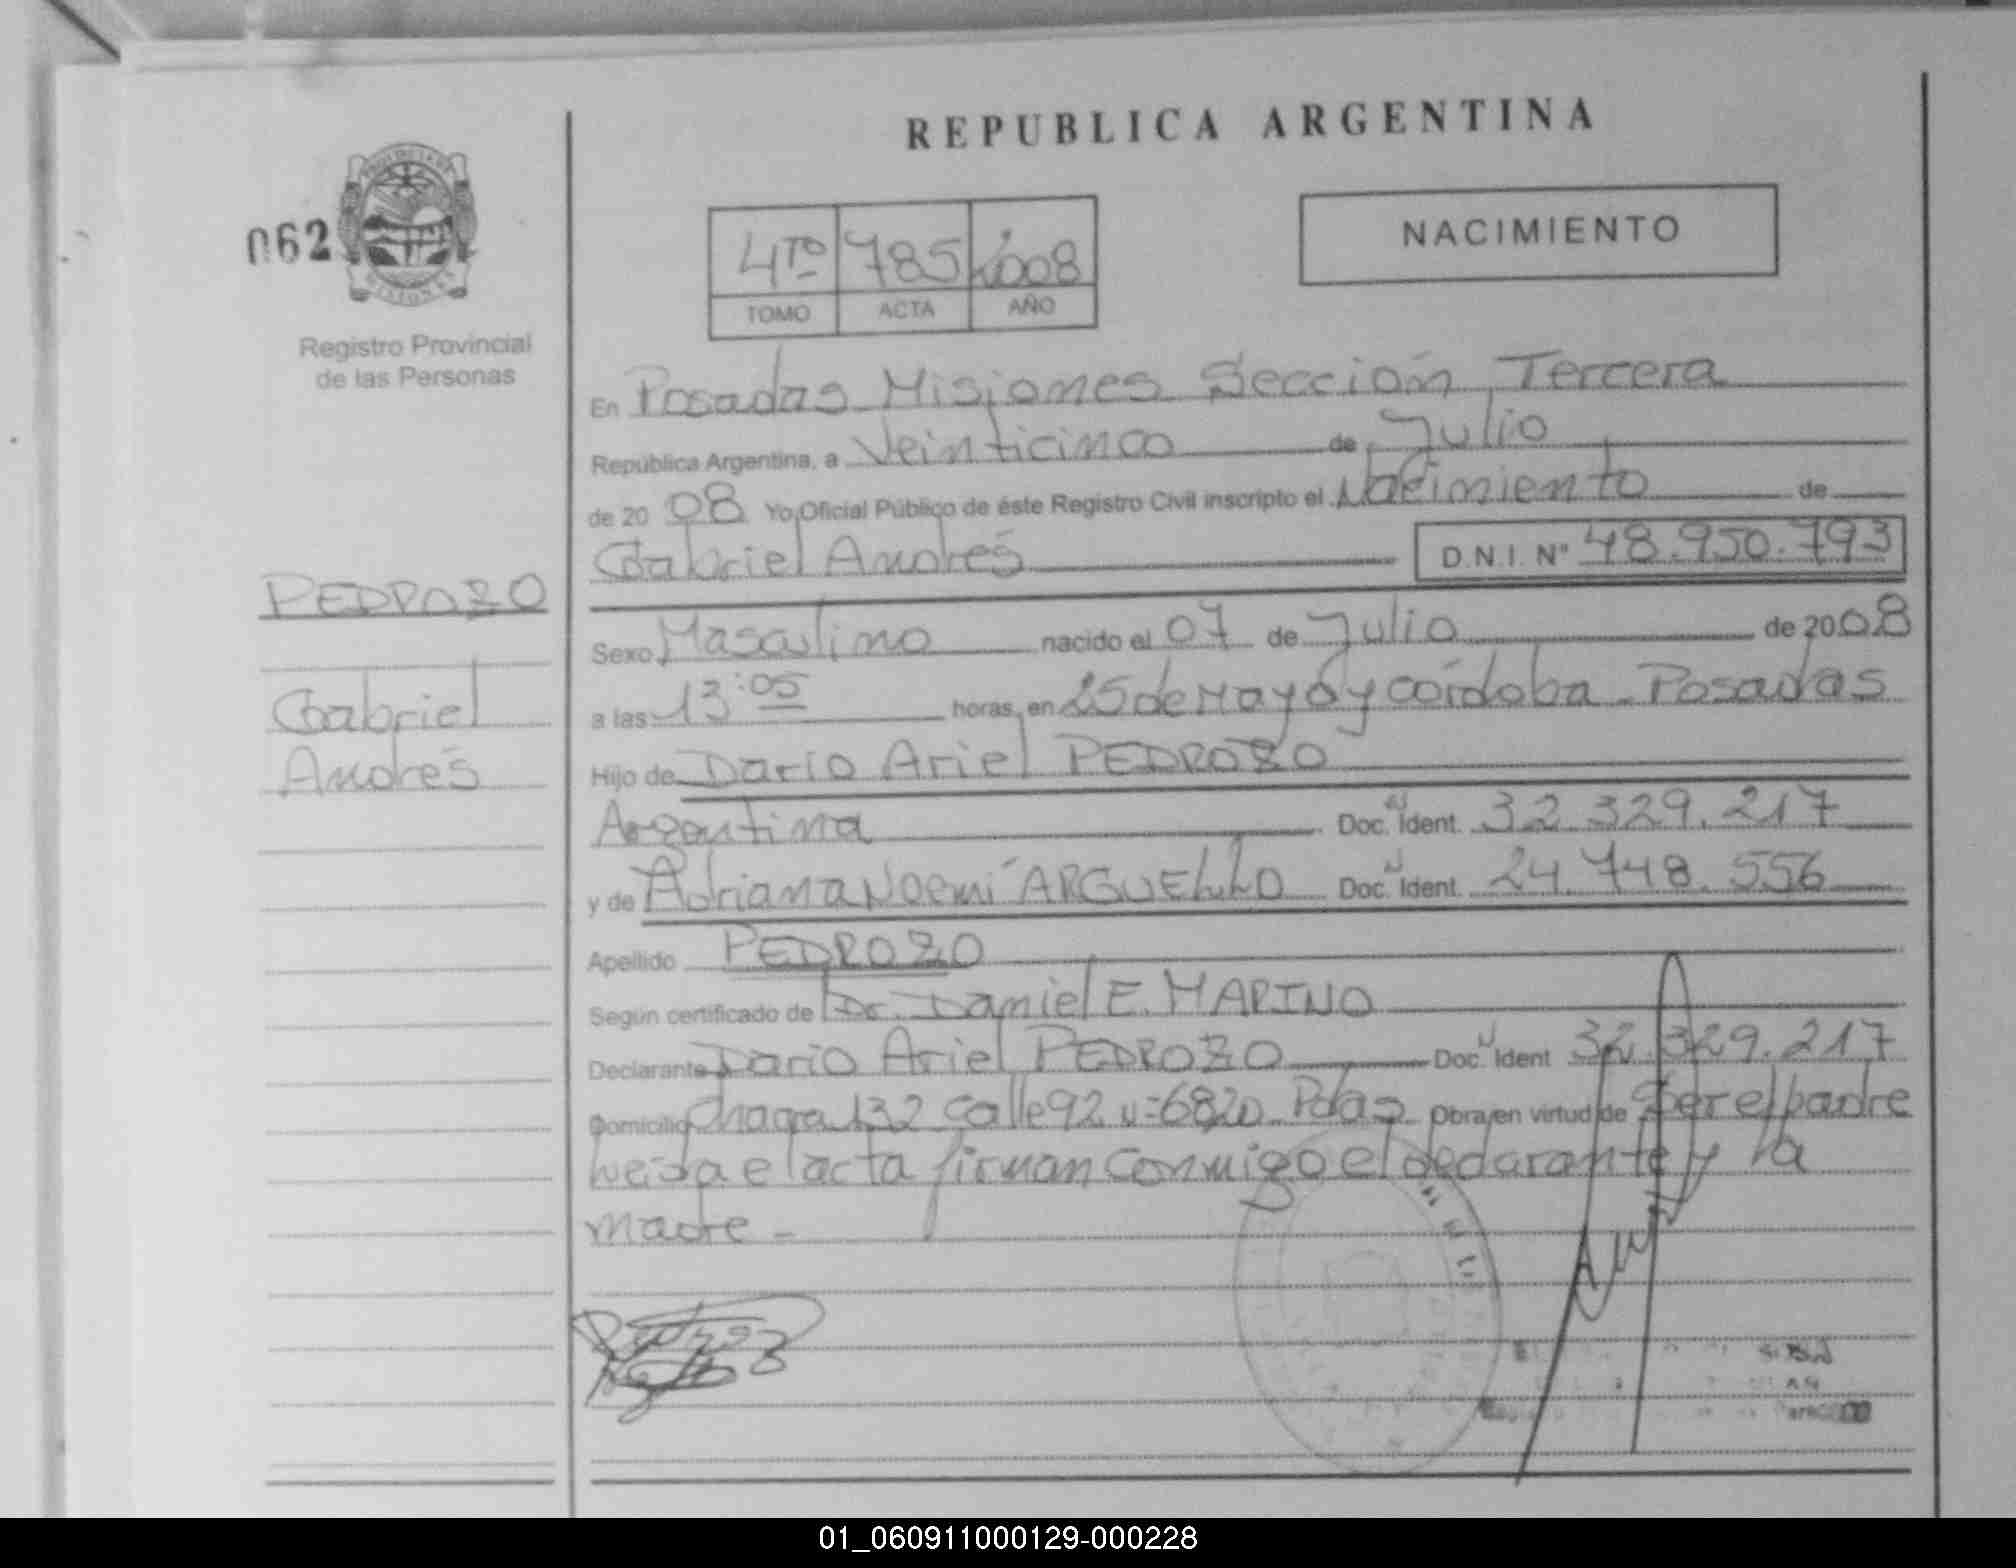 REPUBLICA ARGENTINA
062
PROVINCIA DE
MISIONES
Registro Provincial
de las Personas
4TO 785 2008
TOMO ACTA AÑO
NACIMIENTO
En Posadas Misiones Sección Tercera
República Argentina, a Veinticinco de Julio
de 2008 Yo, Oficial Público de éste Registro Civil inscripto el Nacimiento de
Gabriel Andrés D.N.I. N° 48.950.793
PEDROZO
Gabriel
Andrés
Sexo Masculino nacido el 07 de Julio de 2008
a las 13:05 horas, en 25 de Mayo y Córdoba - Posadas
Hijo de Dario Ariel PEDROZO
Argentina Doc. Ident. 32.329.217
y de Adriana Noemí ARGUELLO Doc. Ident. 24.748.556
Apellido PEDROZO
Según certificado de Dr. Daniel E. MARINO
Declarante Dario Ariel PEDROZO Doc. Ident 32.329.217
Domicilio Chacra 132 Calle 92 N=6820 Pdas Obra en virtud de Ser el padre
Leída el acta firman conmigo el declarante y la
madre -
01_060911000129-000228